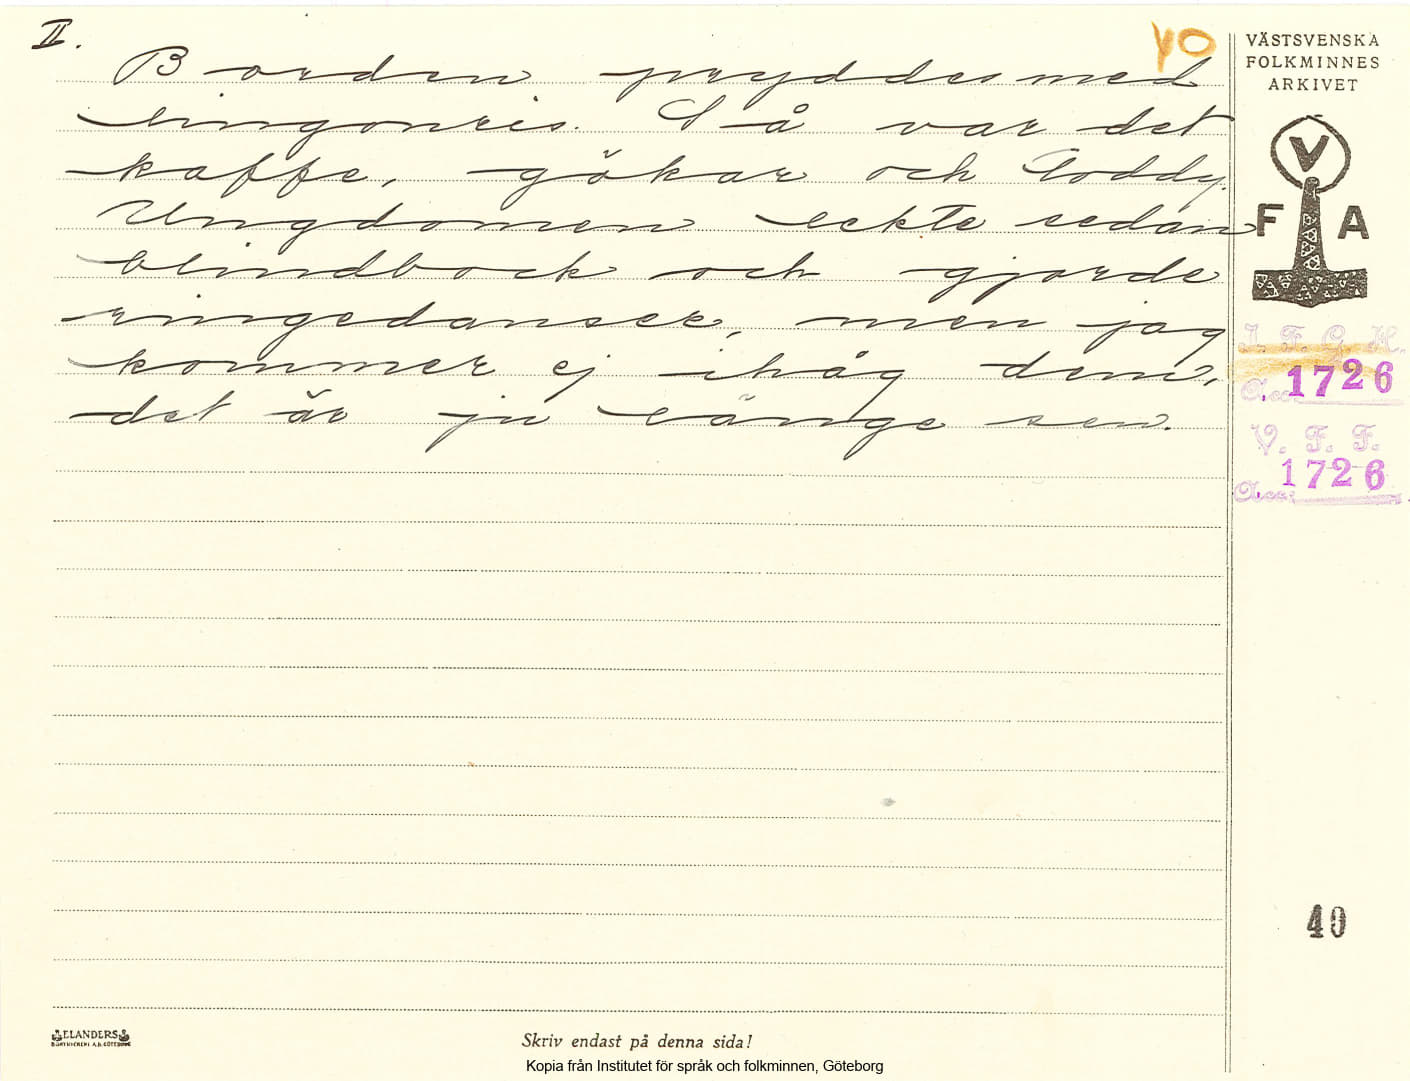 II.
Borden pryddes med
lingonris. Så var det
kaffe, gökar och Toddy.
Ungdomen lekte sedan
blindbock och gjorde
ringedanser, men jag
kommer ej ihåg dem,
det är ju länge sen.
40
VÄSTSVENSKA
FOLKMINNES
ARKIVET
V
F A
I. F. G. H.
Acc. 1726
V. F. F.
Acc. 1726
40
ELANDERS
BOKTRYCKERI A.B. GÖTEBORG
Skriv endast på denna sida!
Kopia från Institutet för språk och folkminnen, Göteborg